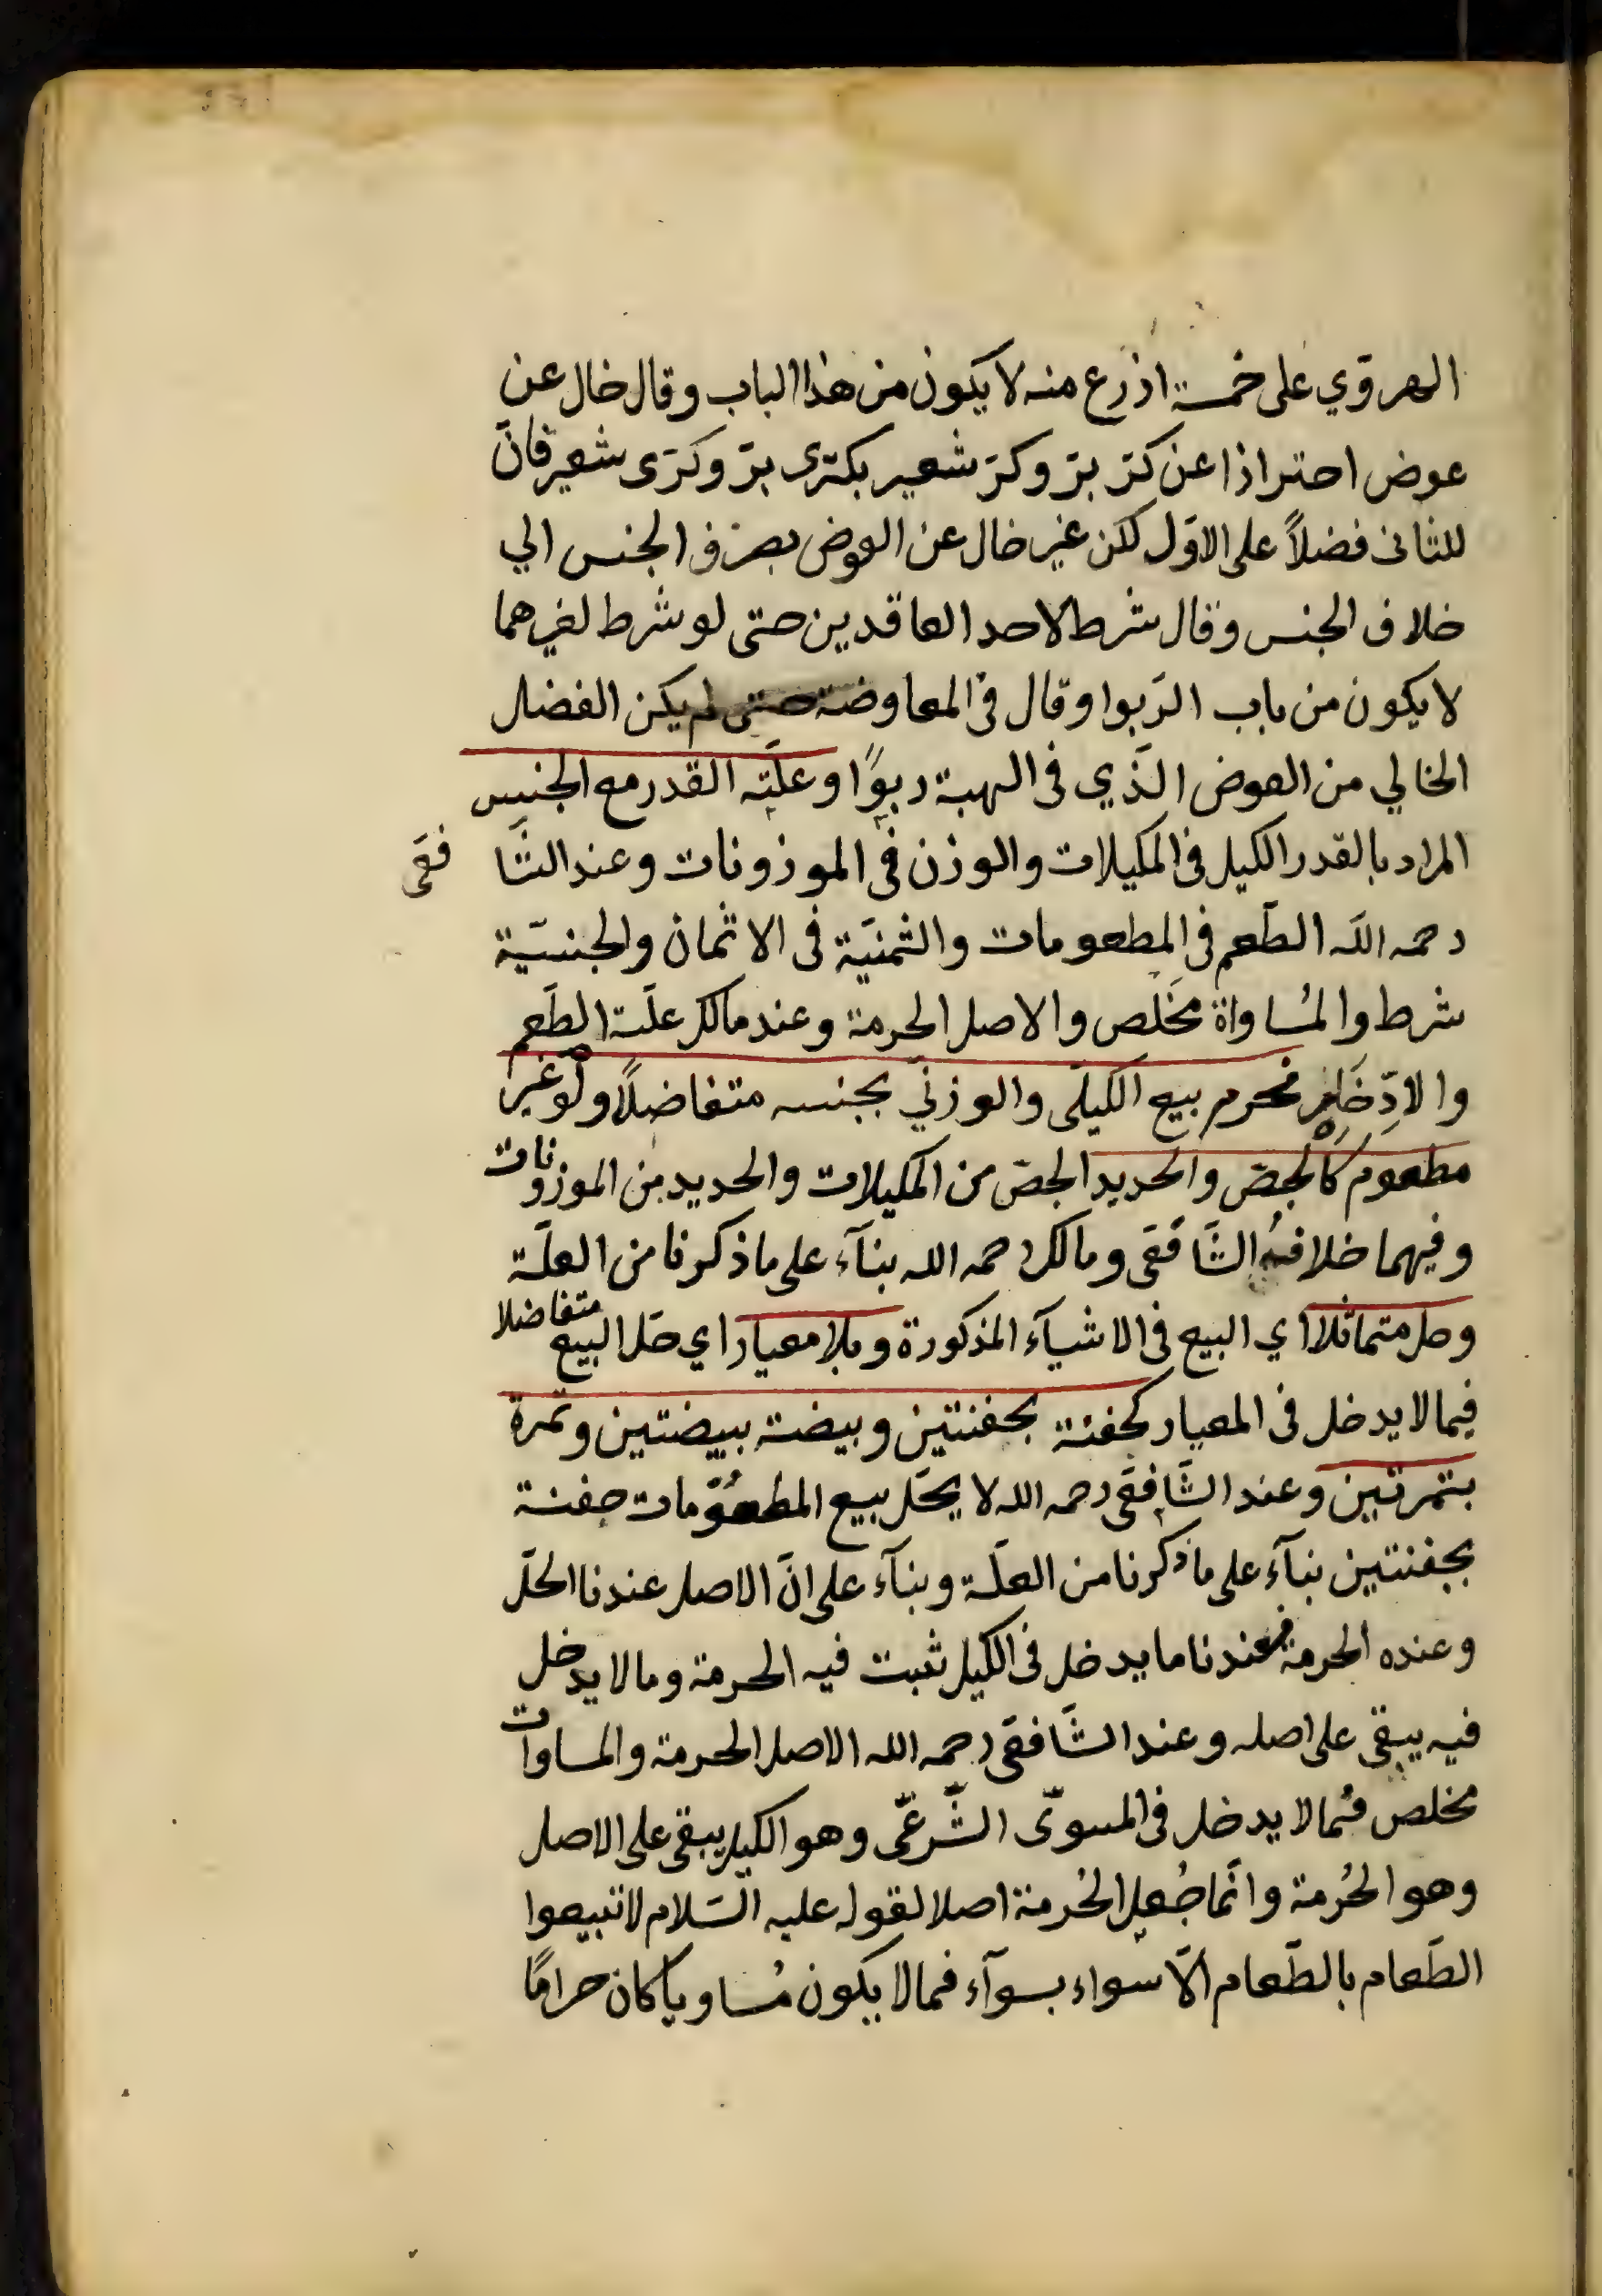 الهروي على خمسة اذرع منه لا يكون من هذا الباب وقال خال عن
عوض احترازا عن كرّ برّ وكرّ شعير بكرّى برّ وكرّى شعير فانّ
للثانى فضلاً على الاوّل لكن غير خال عن العوض بصرف الجنس الي
خلاف الجنس وقال شرط لاحد العاقدين حتى لو شرط لغيرهما
لا يكون من باب الرّبوا وقال فى المعاوضة حتى لم يكن الفضل
الخالي من العوض الّذي فى الهبة ربوًا وعلّته القدر مع الجنس
المراد بالقدر الكيل فى المكيلات والوزن فى الموزونات وعند الشّا فعى
رحمه اللّه الطّعم فى المطعومات والثمنيّة فى الاثمان والجنسيّة
شرط والمُساواة مخَلص والاصل الحرمة وعند مالك علّة الطّعم
والادِّخَار فحرم بيع الكيلّى والوزنّي بجنسه متفاضلاً ولو غير
مطعوم كالجصّ والحديد الجصّ من المكيلات والحديد من الموزونات
وفيهما خلاف الشّافعّى ومالك رحمه الله بنآء على ما ذكرنا من العلّة
وحل متماثلا اي البيع فى الاشيآء المذكورة وبلا معيار اي حلّ البيع متفاضلا
فيما لا يدخل فى المعيار كحفنة بحفنتين وبيضة ببيضتين وتمرة
بتمرتين وعند الشّافعّى رحمه الله لا يحلّ بيع المطعومات حفنة
بحفنتين بنآء على ما ذكرنا من العلّة وبنآء على انّ الاصل عندنا الحلّ
وعنده الحرمة فعندنا ما يدخل فى الكيل ثبت فيه الحرمة وما لا يدخل
فيه يبقى على اصله وعند الشّافعّى رحمه الله الاصل الحرمة والمساوات
مخلص فما لا يدخل فى المسوّى الشّرعّى وهو الكيل يبقى على الاصل
وهو الحُرمة وانّما جُعل الحُرمة اصلا لقوله عليه السّلام لا تبيعوا
الطّعام بالطّعام الّا سواء بسوآء فما لا يكون مُساويا كان حرامًا